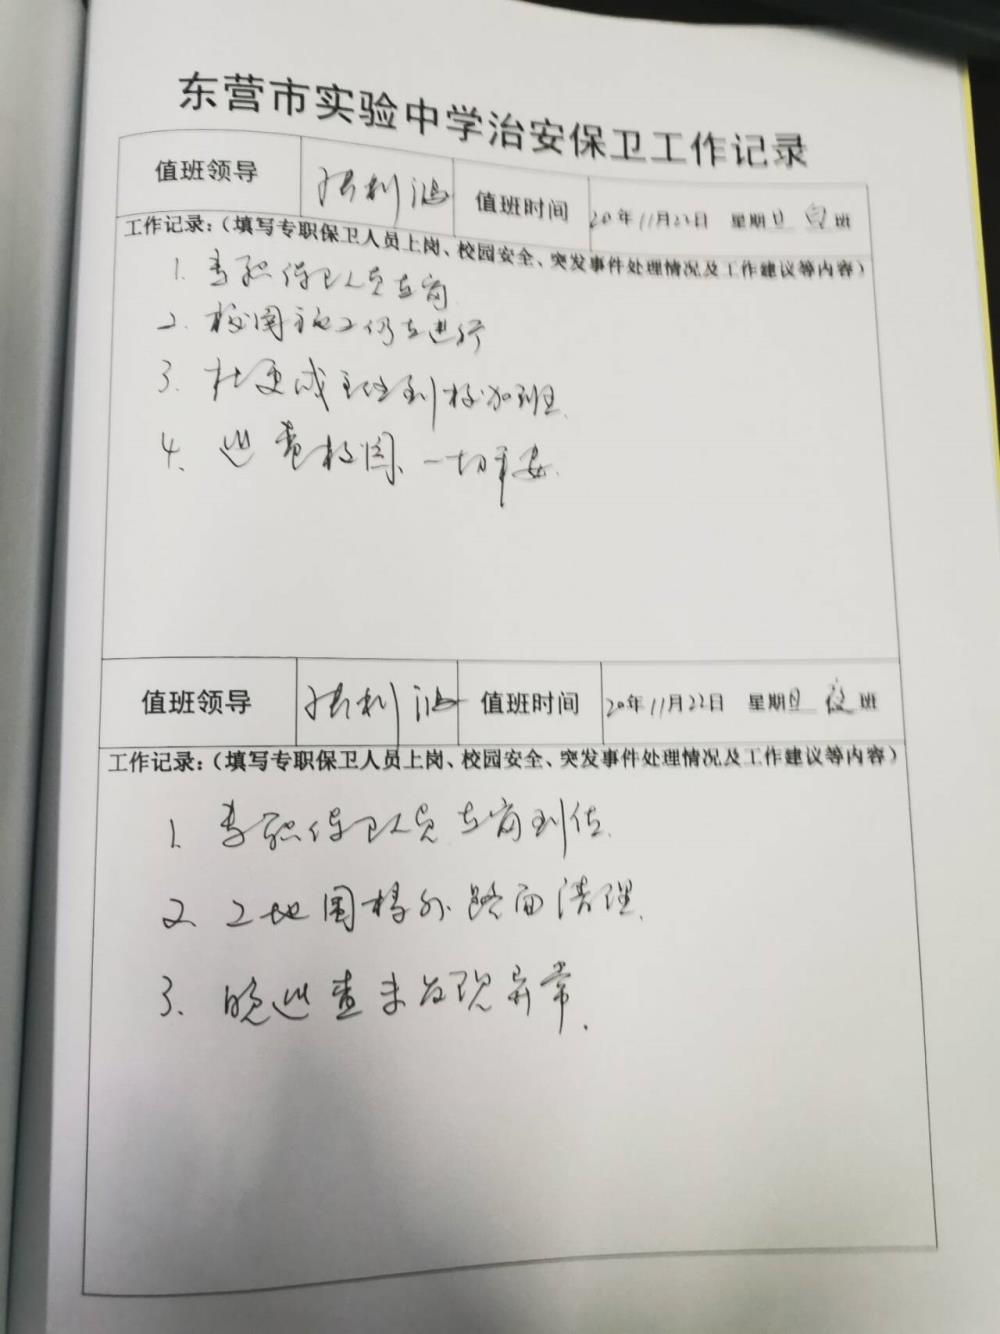 东营市实验中学治安保卫工作记录
值班领导 利 值班时间 20年11月22日 星期日 白班
工作记录：（填写专职保卫人员上岗、校园安全、突发事件处理情况及工作建议等内容）
1. 专职保卫人员在岗
2. 校园施工仍在进行
3. 杜更成主任到校加班.
4. 巡查校园、一切平安.
值班领导 利 值班时间 20年11月22日 星期日 夜班
工作记录：（填写专职保卫人员上岗、校园安全、突发事件处理情况及工作建议等内容）
1. 专职保卫人员在岗到位.
2. 工地围挡外路面清理.
3. 晚巡查未发现异常.